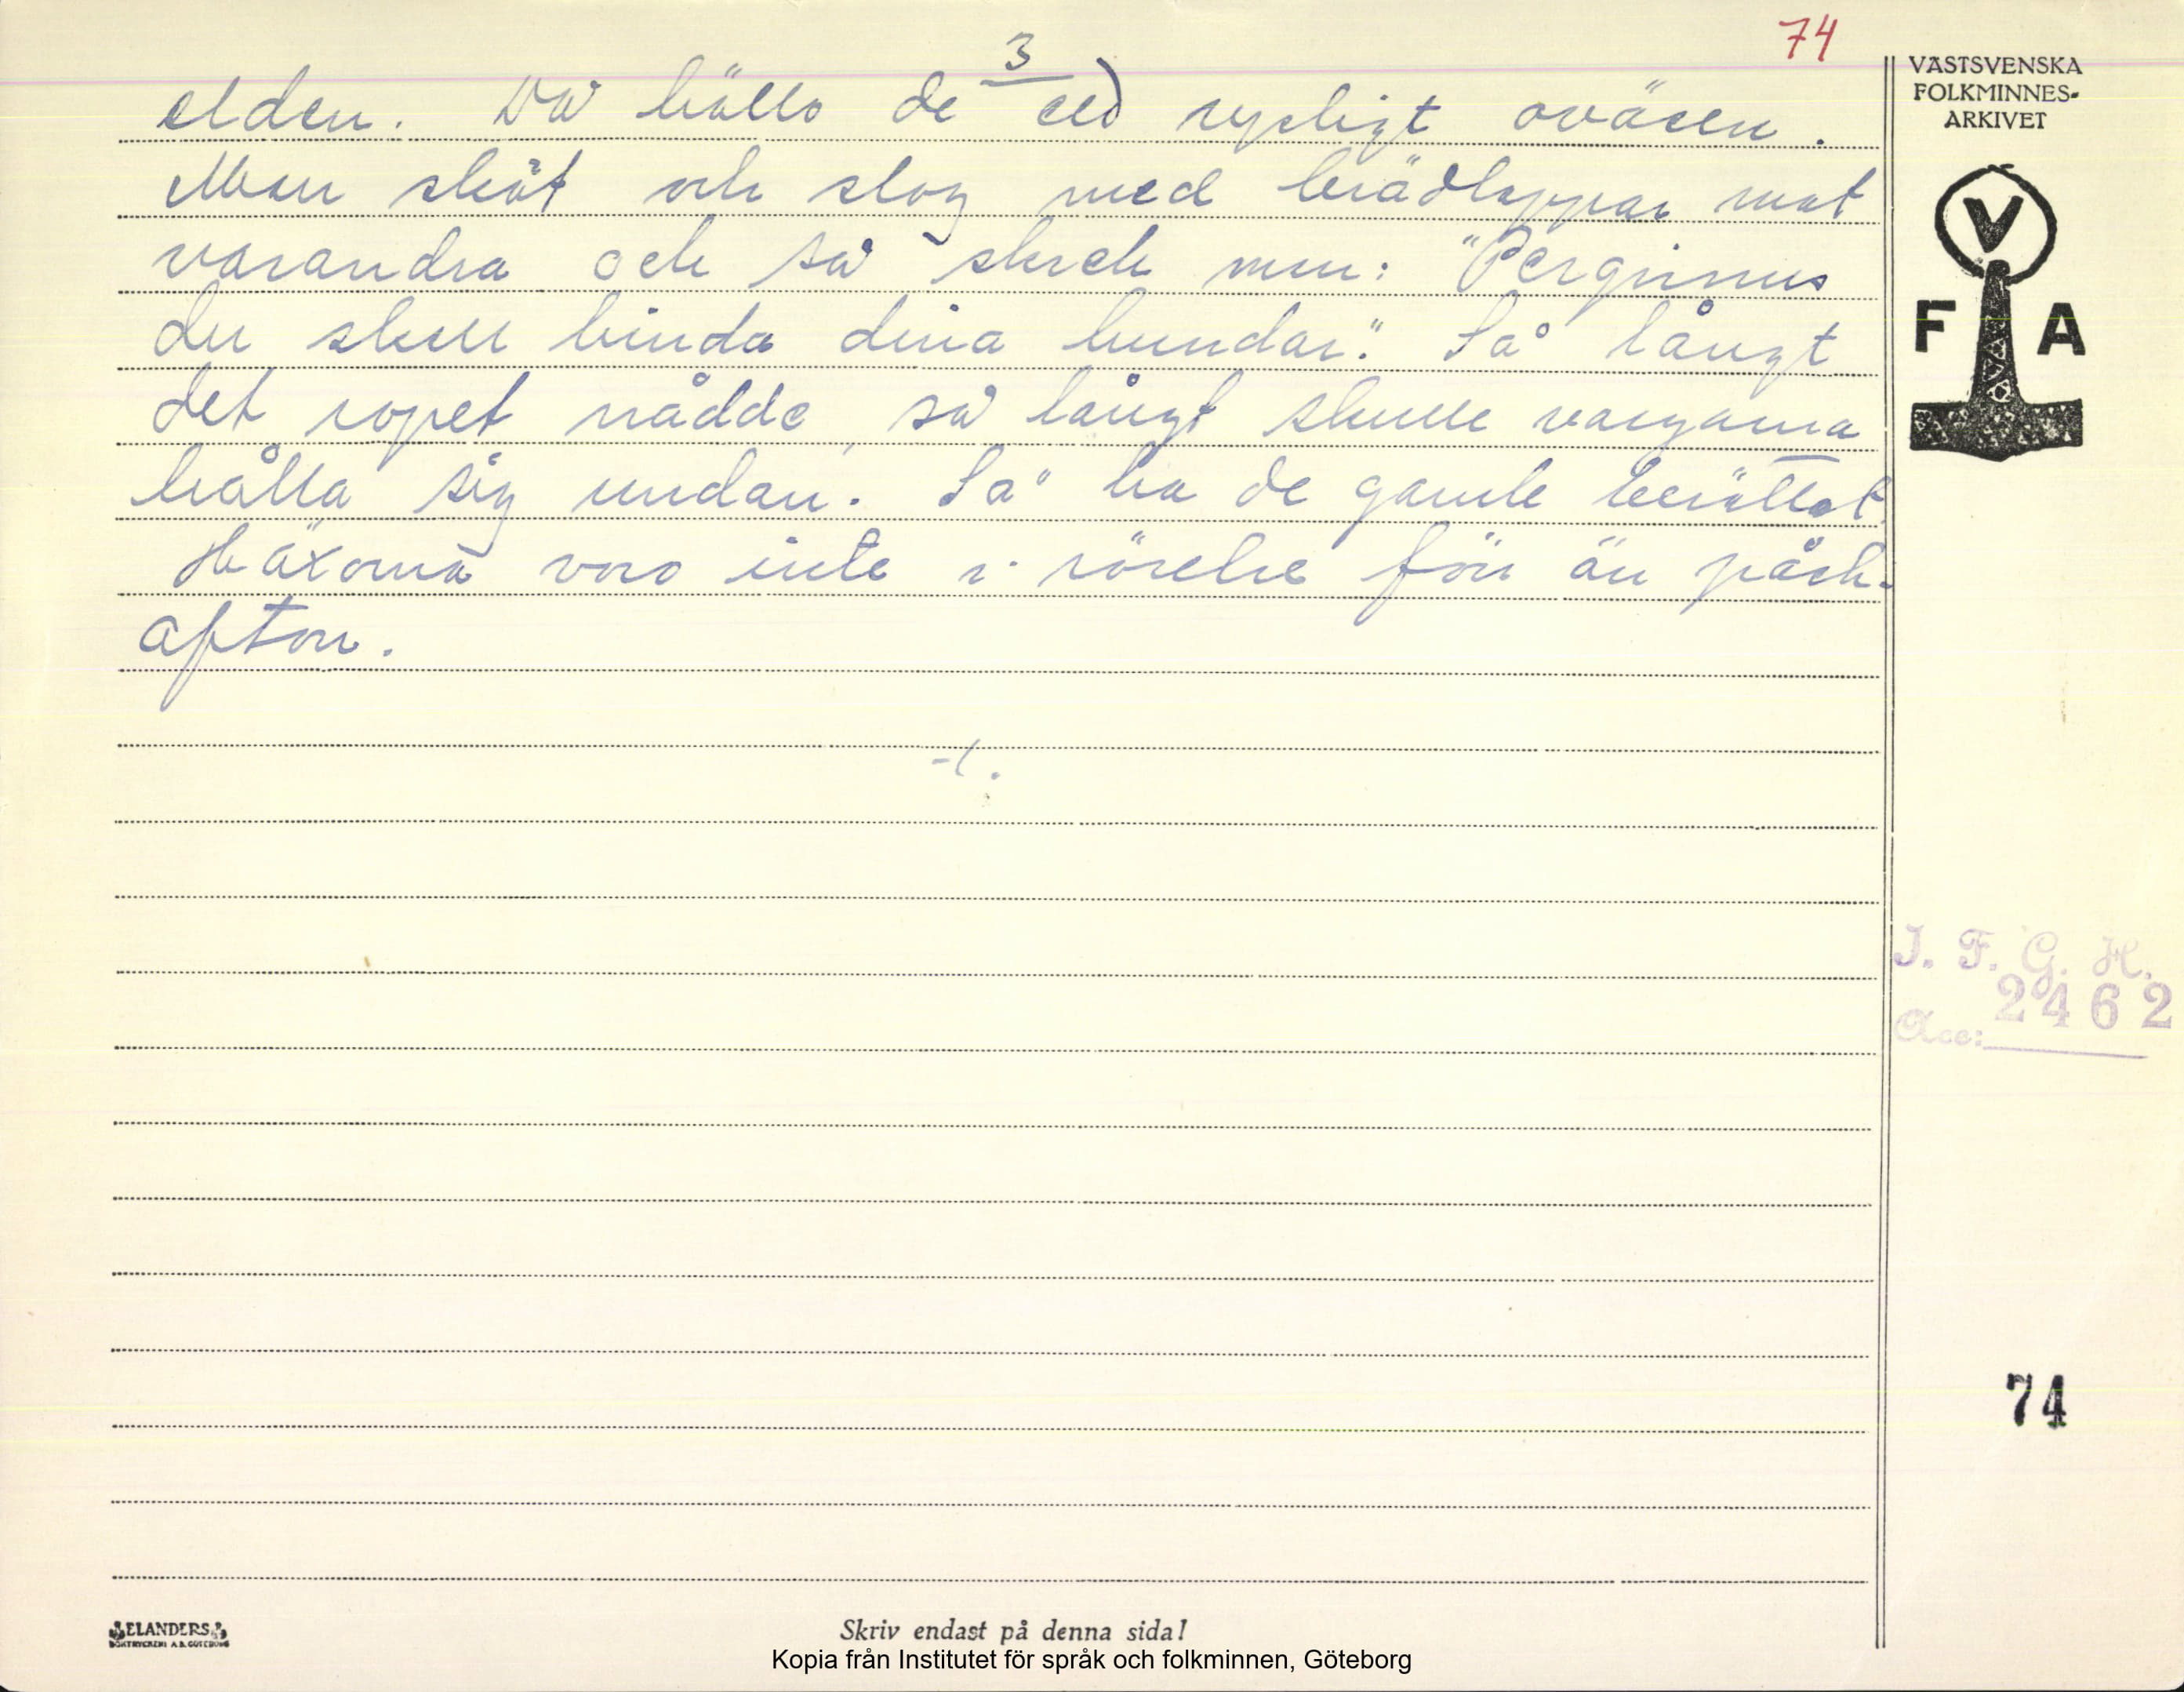 74
3
VÄSTSVENSKA
FOLKMINNES-
ARKIVET
elden. Då höllo de ett rysligt oväsen.
Man sköt och slog med brädlappar mot
varandra och så skrek man: "Pergrinus
du skall binda dina hundar." Så långt
det ropet nådde, så långt skulle vargarna
hålla sig undan. Så ha de gamle berättat.
Häxorna voro inte i rörelse förr än påsk-
afton.
V
F A
I. F. G. H.
2462
Acc:
74
ELANDERS
BOKTRYCKERI A.B. GÖTEBORG
Skriv endast på denna sida!
Kopia från Institutet för språk och folkminnen, Göteborg